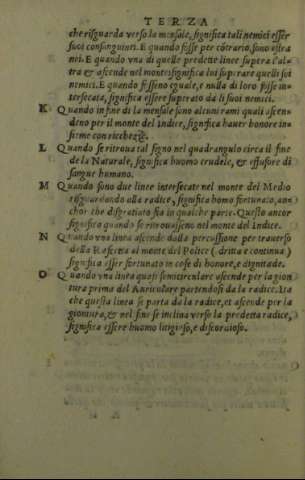 TERZA
che risguarda verso la mensale, significa tali nemici esser
suoi consanguinei. E quando fosse per cōtrario, sono estra
nei. E quando vna di quelle predette linee supera l'al-
tra & ascende nel monte: significa lui superare quelli soi
nemici. E quando fosseno eguale, e nulla di loro fosse in-
tersecata, significa essere superato da li suoi nemici.
K Quando in fine di la mensale sono alcuni rami quali ascen-
deno per il monte del Indice, significa hauer honore in-
sieme con ricchezze.
L Quando se ritroua tal segno nel quadrangulo circa il fine
de la Naturale, significa huomo crudele, & effusore di
sangue humano.
M Quando sono due linee intersecate nel monte del Medio
risguardando alla radice, significa homo fortunato, an-
chor che disgratiato sia in qualche parte. Questo ancor
significa quando se ritrouasseno nel monte del Indice.
N Quando vna linea ascende dalla percussione per trauerso
della Rascetta al monte del Police (dritta e continua)
significa esser fortunato in cose di honore, e dignitade.
O Quando vna linea quasi semicirculare ascende per la gion
tura prima del Auricolare partendosi da la radice. Ita
che questa linea se parta da la radice, et ascende per la
giontura, & nel fine se inclina verso la predetta radice,
significa essere huomo litigioso, e discordioso.